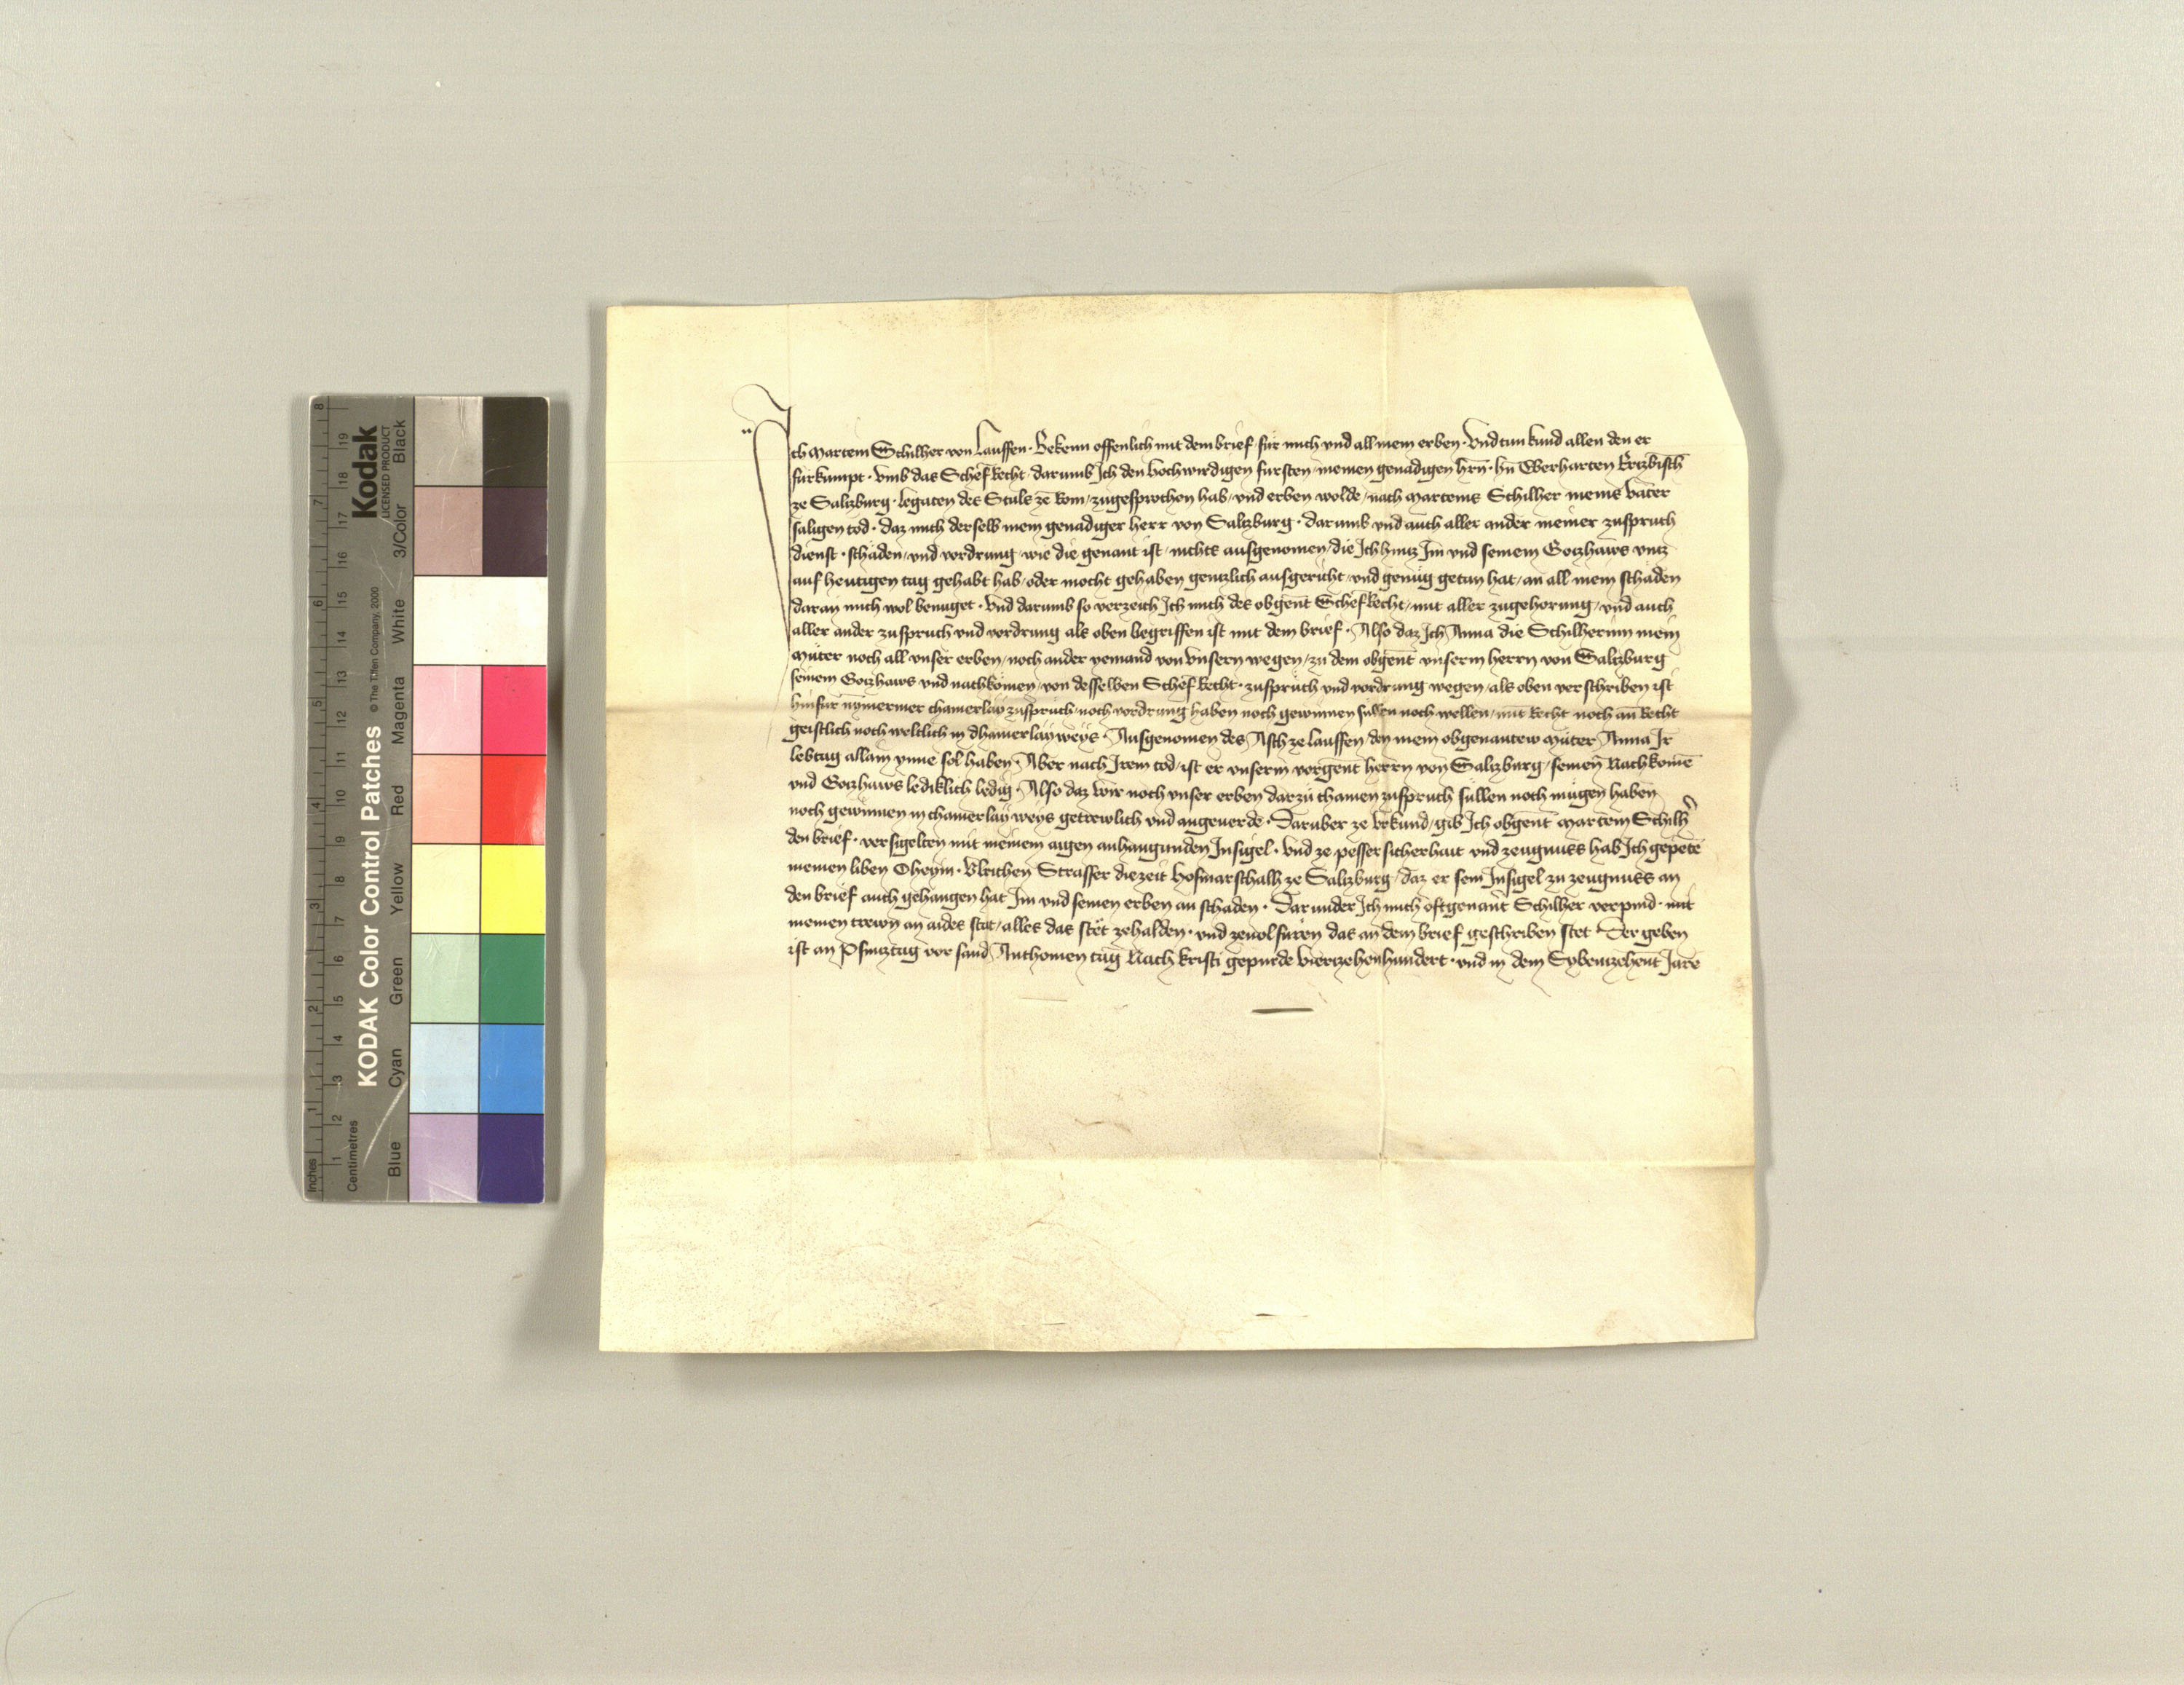 Ich Martein Schilher von Lauffen · Bekenn offenlich mit dem brief für mich und all mein erben · Und tun kund allen den er
fürkumpt · umb das Schefrecht · darumb Ich den hochwirdigen fürsten meinen genadigen hrn · hn Eberharten Ertzbisch
ze Saltzburg · legaten des Stuls ze Rom / zugesprochen hab / und erben wolde / nach Marteins Schilher meins vater
saligen tod · daz mich derselb mein genadiger herr von Saltzburg · darumb und auch aller ander meiner zuspruch
dienst · schäden / und vordrung / wie die genant ist / nichts ausgenomen / die Ich hintz Im und seinem Gotzhaws untz
auf heutigen tag gehabt hab / oder mocht gehaben gentzlich ausgericht / und genüg getan hat / an all mein schäden
daran mich wol benüget · Und darumb so verzeich Ich mich des obgent Schefrecht / mit aller zugehorung / und auch
aller ander zuspruch und vordrung als oben begriffen ist mit dem brief · Also daz Ich Anna die Schilherinn mein
Müter noch all unser erben / noch ander yemand von unsern wegen / zu dem obgent unserm herrn von Saltzburg
seinem Gotzhaws und nachkomen / von desselben Schefrecht · zuspruch und vordrung wegen / als oben verschriben ist
hinfür nymermer chainerlay zuspruch / noch vordrung haben noch gewinnen sullen noch wellen / mit Recht noch an Recht
geistlich noch weltlich in dhainerlay weys · Ausgenomen des Asch ze Lauffen / den mein obgenantew Müter Anna Ir
lebtag allain ynne sol haben · Aber nach Irem tod / ist er unserm vorgent herrn von Saltzburg / seinen Nachkome
und Gotzhaws lediklich ledig · Also daz wir noch unser erben darzu chainen zuspruch sullen noch mügen haben
noch gewinnen in chainerlay weys getrewlich und angeverde · Darüber ze Urkund / gib Ich obgent Martein Schilh
den brief · versigelten mit meinem aigen anhangunden Insigel · Und ze pesser sicherhait und zeugnuss hab Ich gepete
meinen liben Oheym · Ulrichen Strasser die zeit Hofmarschalh ze Saltzburg / daz er sein Insigel zu zeugnuss an
den brief auch gehangen hat Im und seinen erben an schaden · Darunder Ich mich oftgenant Schilher verpind · mit
meinen trewn an aides stat / alles das stet zehalden · und zevolfuren das an dem brief geschriben stet · Der geben
ist an Pfintztag vor sand Anthonien tag Nach Kristi gepurde Viertzehenhundert · und in dem Sybentzehent Jare
KODAK Color Control Patches
© The Tiffen Company, 2000
Kodak
LICENSED PRODUCT
Inches
1 2 3 4 5 6 7 8
Centimetres
1 2 3 4 5 6 7 8 9 10 11 12 13 14 15 16 17 18 19
Blue
Cyan
Green
Yellow
Red
Magenta
White
3/Color
Black